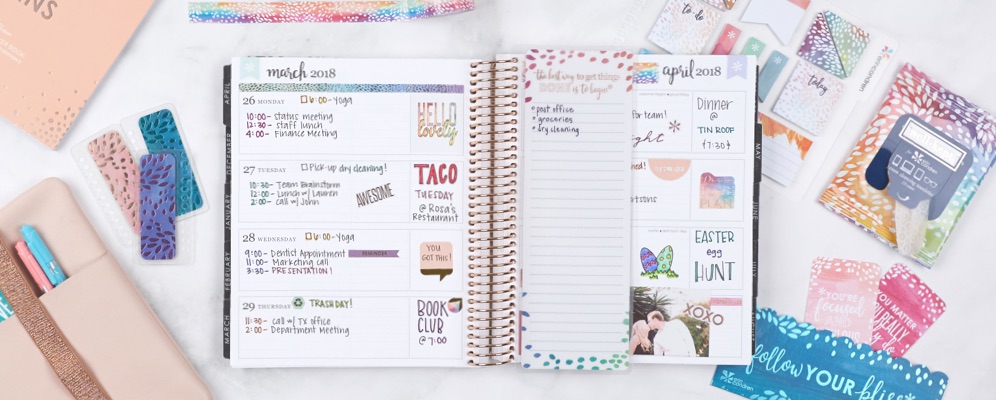 to do
today
erin condren
march 2018
26 MONDAY
6:00- Yoga
10:00- Status meeting
12:30- staff lunch
4:00- Finance Meeting
HELLO
lovely
27 TUESDAY
Pick-up dry cleaning!
10:30- Team Brainstorm
12:00- Lunch w/ Lauren
2:00- call w/ John
AWESOME
TACO
TUESDAY
@ Rosa's
Restaurant
28 WEDNESDAY
6:00-Yoga
9:00- Dentist Appointment
REMINDER
11:00- Marketing call
3:30- PRESENTATION!
YOU
GOT THIS!
29 THURSDAY
TRASH DAY!
11:30- call w/ TX office
2:00- Department Meeting
BOOK
CLUB
@ 7:00
APRIL
DECEMBER
JANUARY
FEBRUARY
MARCH
the best way to get things
DONE is to begin
*post office
*groceries
*dry cleaning
april 2018
for team!
Dinner
@
TIN ROOF
7:30
EASTER
egg
HUNT
XOXO
MAY
JUNE
YOU'RE
focused
YOU MATTER
REALLY
follow YOUR bliss
erin condren